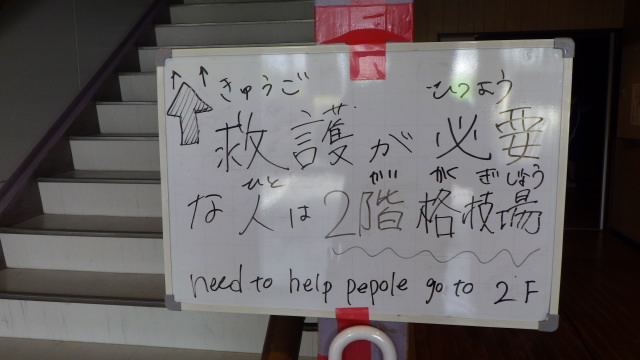 きゅうご ひつよう
救護が必要
ひと がい かくぎじょう
な人は2階格技場
need to help pepole go to 2F